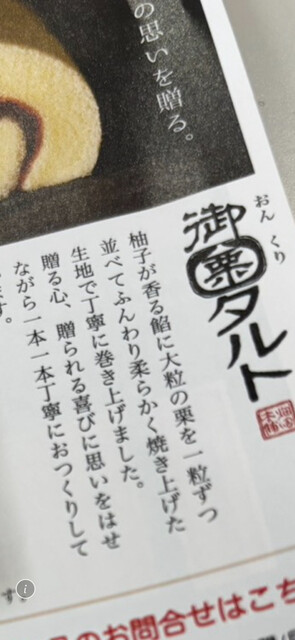 の思いを贈る。
おん くり
御栗タルト
柚子が香る餡に大粒の栗を一粒ずつ
並べてふんわり柔らかく焼き上げた
生地で丁寧に巻き上げました。
贈る心、贈られる喜びに思いをはせ
ながら一本一本丁寧におつくりして
ます。
す。
のお問合せはこち